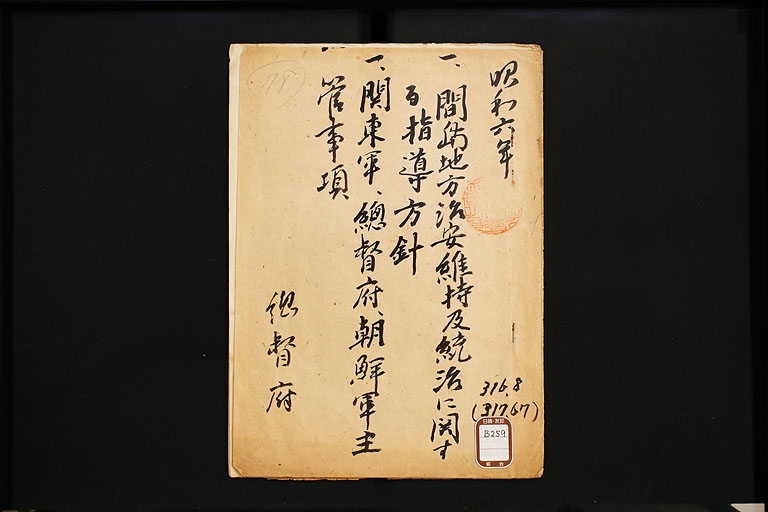 昭和六年
一、間島地方治安維持及統治に関す
る指導方針
一、関東軍、總督府、朝鮮軍主
管事項
總督府
316.8
(317.67)
日韓・友邦
B259
協会